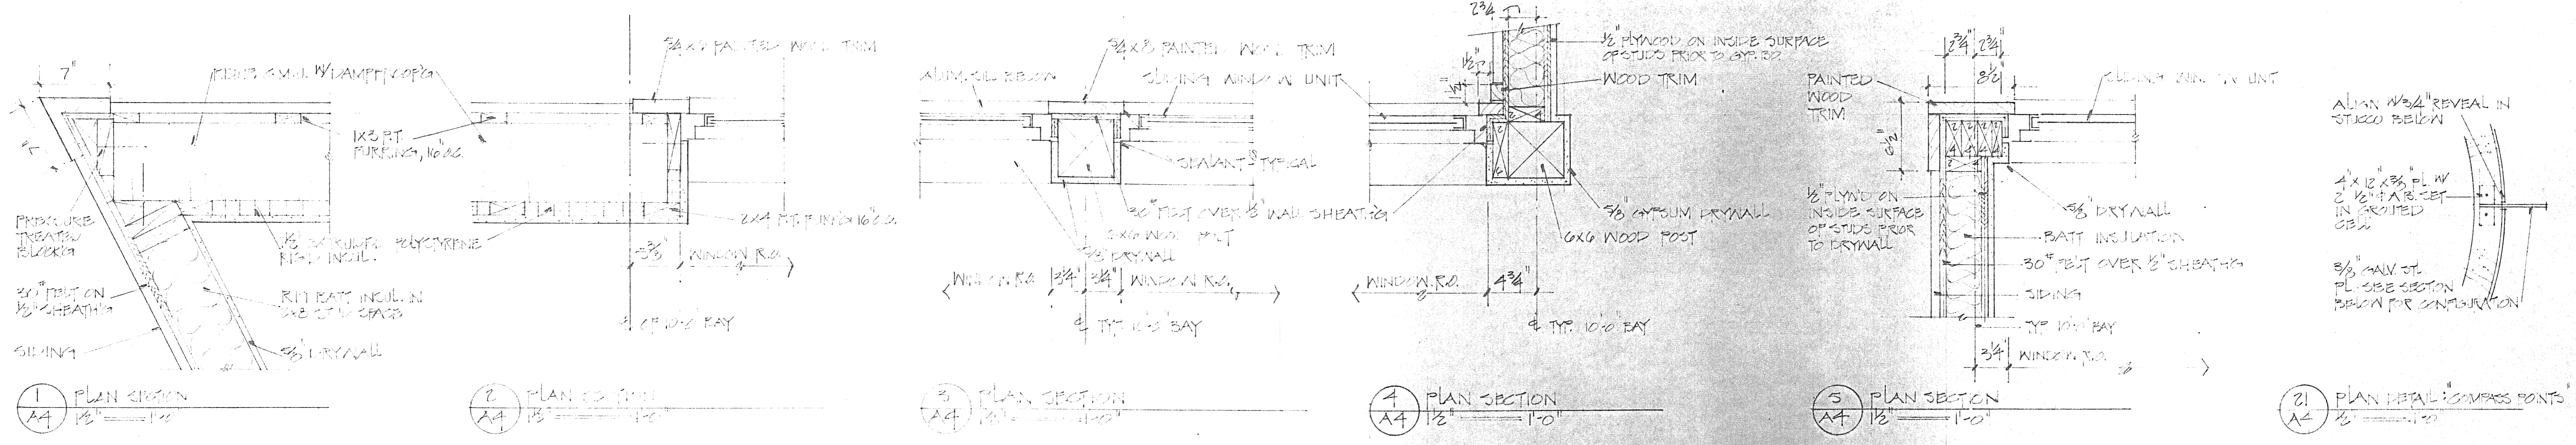 7"
W/DAMPPROOF'G
1X3 P.T.
FURRING, 16"O.C.
PRESSURE
TREATED
BLOCK'G
1½" EXTRUDED POLYSTYRENE
RIGID INSUL.
30# FELT ON
½" SHEATH'G
BATT INSUL. IN
2X8 STUD SPACE
SIDING
5/8" DRYWALL
1
A4
PLAN SECTION
1½" = 1'-0"
PAINTED WOOD TRIM
2X4 P.T. FURR'G 16"O.C.
WINDOW R.O.
℄ OF 10'-0" BAY
2
A4
PLAN SECTION
1½" = 1'-0"
5/4 X 8 PAINTED WOOD TRIM
ALUM. SILL BELOW
SLIDING WINDOW UNIT
SEALANT TYPICAL
30# FELT OVER ½" WALL SHEATH'G
6X6 WOOD POST
5/8" DRYWALL
WINDOW R.O.
3¼"
3¼"
WINDOW R.O.
℄ TYP. 10'-0" BAY
3
A4
PLAN SECTION
1½" = 1'-0"
2¾
½" PLYWOOD ON INSIDE SURFACE
OF STUDS PRIOR TO GYP. BD.
1½"
WOOD TRIM
5/8" GYPSUM DRYWALL
6X6 WOOD POST
WINDOW R.O.
4¾"
℄ TYP. 10'-0" BAY
4
A4
PLAN SECTION
1½" = 1'-0"
2¾"
2¾"
8½"
PAINTED
WOOD
TRIM
SLIDING WINDOW UNIT
6½"
½" PLYW'D ON
INSIDE SURFACE
OF STUDS PRIOR
TO DRYWALL
5/8" DRYWALL
BATT INSULATION
30# FELT OVER ½" SHEATH'G
SIDING
TYP 10'-0" BAY
3¼"
WINDOW R.O.
5
A4
PLAN SECTION
1½" = 1'-0"
ALIGN W/ 3/4" REVEAL IN
STUCCO BELOW
4" X 12" X 3/8" PL. W/
2 ½"ϕ A.B. SET
IN GROUTED
CELL
3/8" GALV. STL.
PL. SEE SECTION
BELOW FOR CONFIGURATION
21
A4
PLAN DETAIL: "COMPASS POINTS"
1½" = 1'-0"